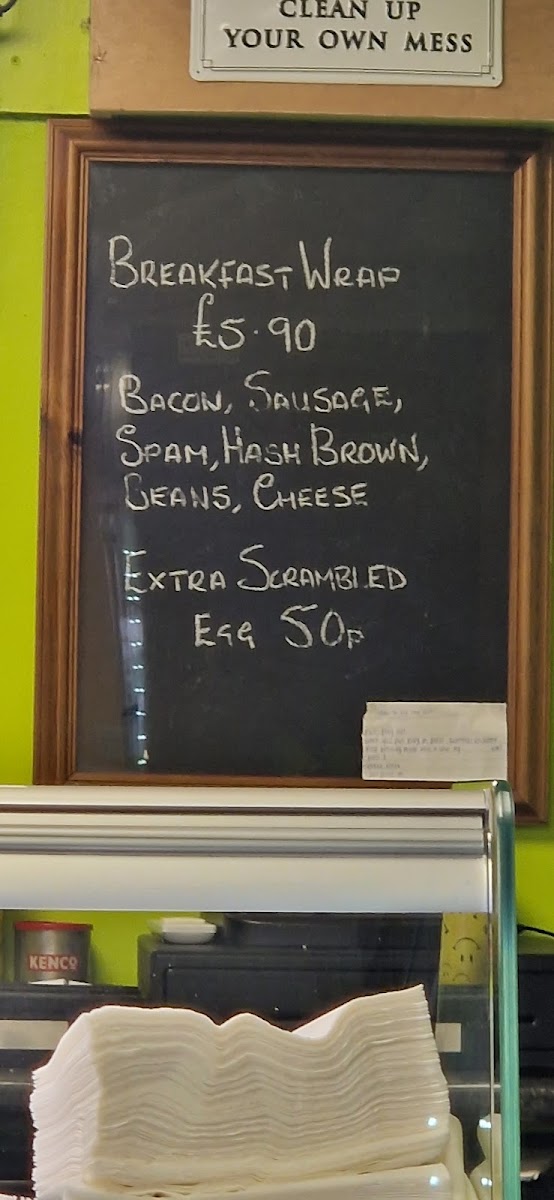 CLEAN UP
YOUR OWN MESS
BREAKFAST WRAP
£5.90
BACON, SAUSAGE,
SPAM, HASH BROWN,
BEANS, CHEESE
EXTRA SCRAMBLED
EGG 50p
KENCO